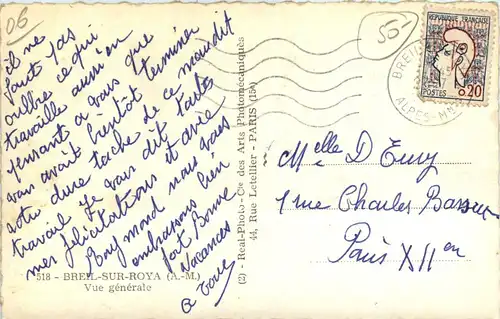 06
50-
REPUBLIQUE FRANÇAISE
POSTES 0,20
BREIL
ALPES-M
il ne
faut pas
oublier ce qui
travaille aussi en
pensants a vous que
vous avait bientot terminée
votre dure tache de ce maudit
travail Je vous dit toutes
mes félicitations et avec
Raymond nous vous
embrassons bien
fort Bonne
Vacances
a vous
518 - BREIL-SUR-ROYA (A.-M.)
Vue générale
(2) - Real-Photo - Cie des Arts Photomécaniques
44, Rue Letellier - PARIS (15e)
Melle D Emy
1 rue Charles Bossut
Paris XII en